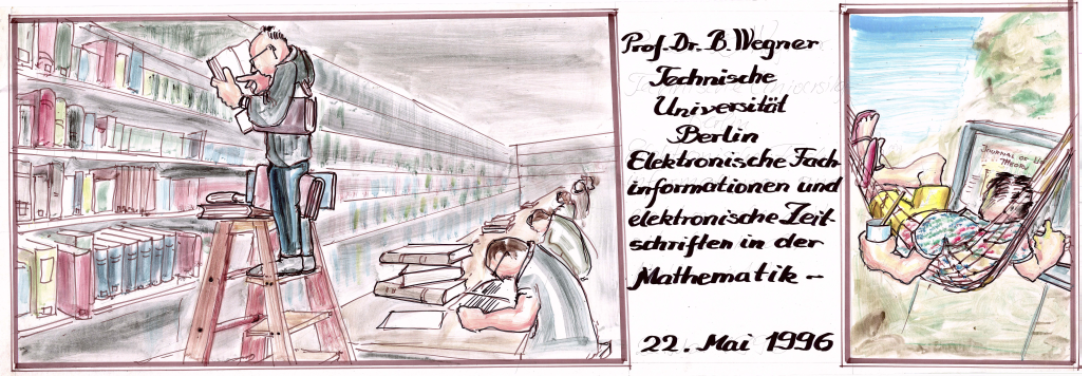 Prof. Dr. B. Wegner
Technische
Universität
Berlin
Elektronische Fach-
informationen und
elektronische Zeit-
schriften in der
Mathematik -
22. Mai 1996
JOURNAL OF
THEORY